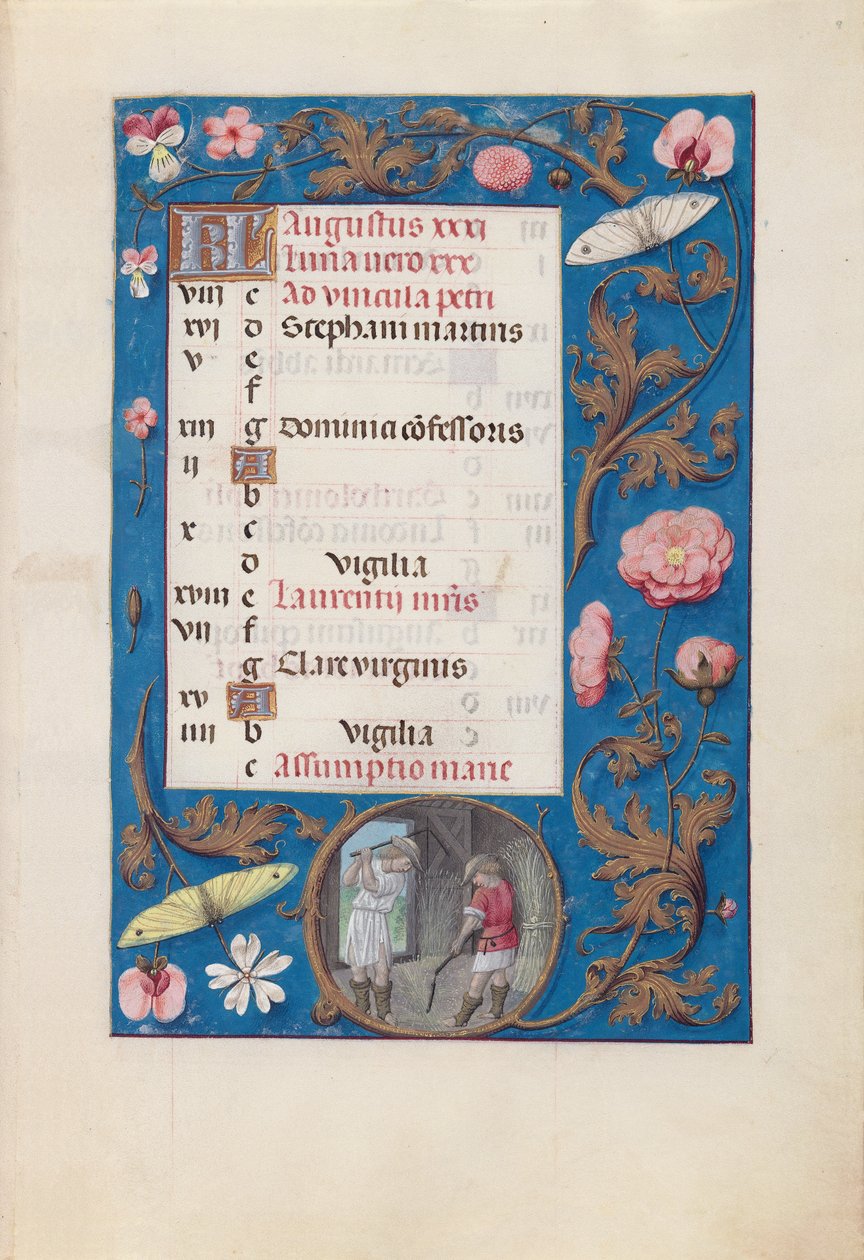 KL Augustus xxxi
Luna vero xxx
viii c Ad vincula petri
xvi d Stephani martiris
v e
f
xiii g Dominici cõfessoris
ii A
b
x c
d vigilia
xviii e Laurentij mr̃is
vii f
g Clare virginis
xv A
iiii b vigilia
c Assumptio marie